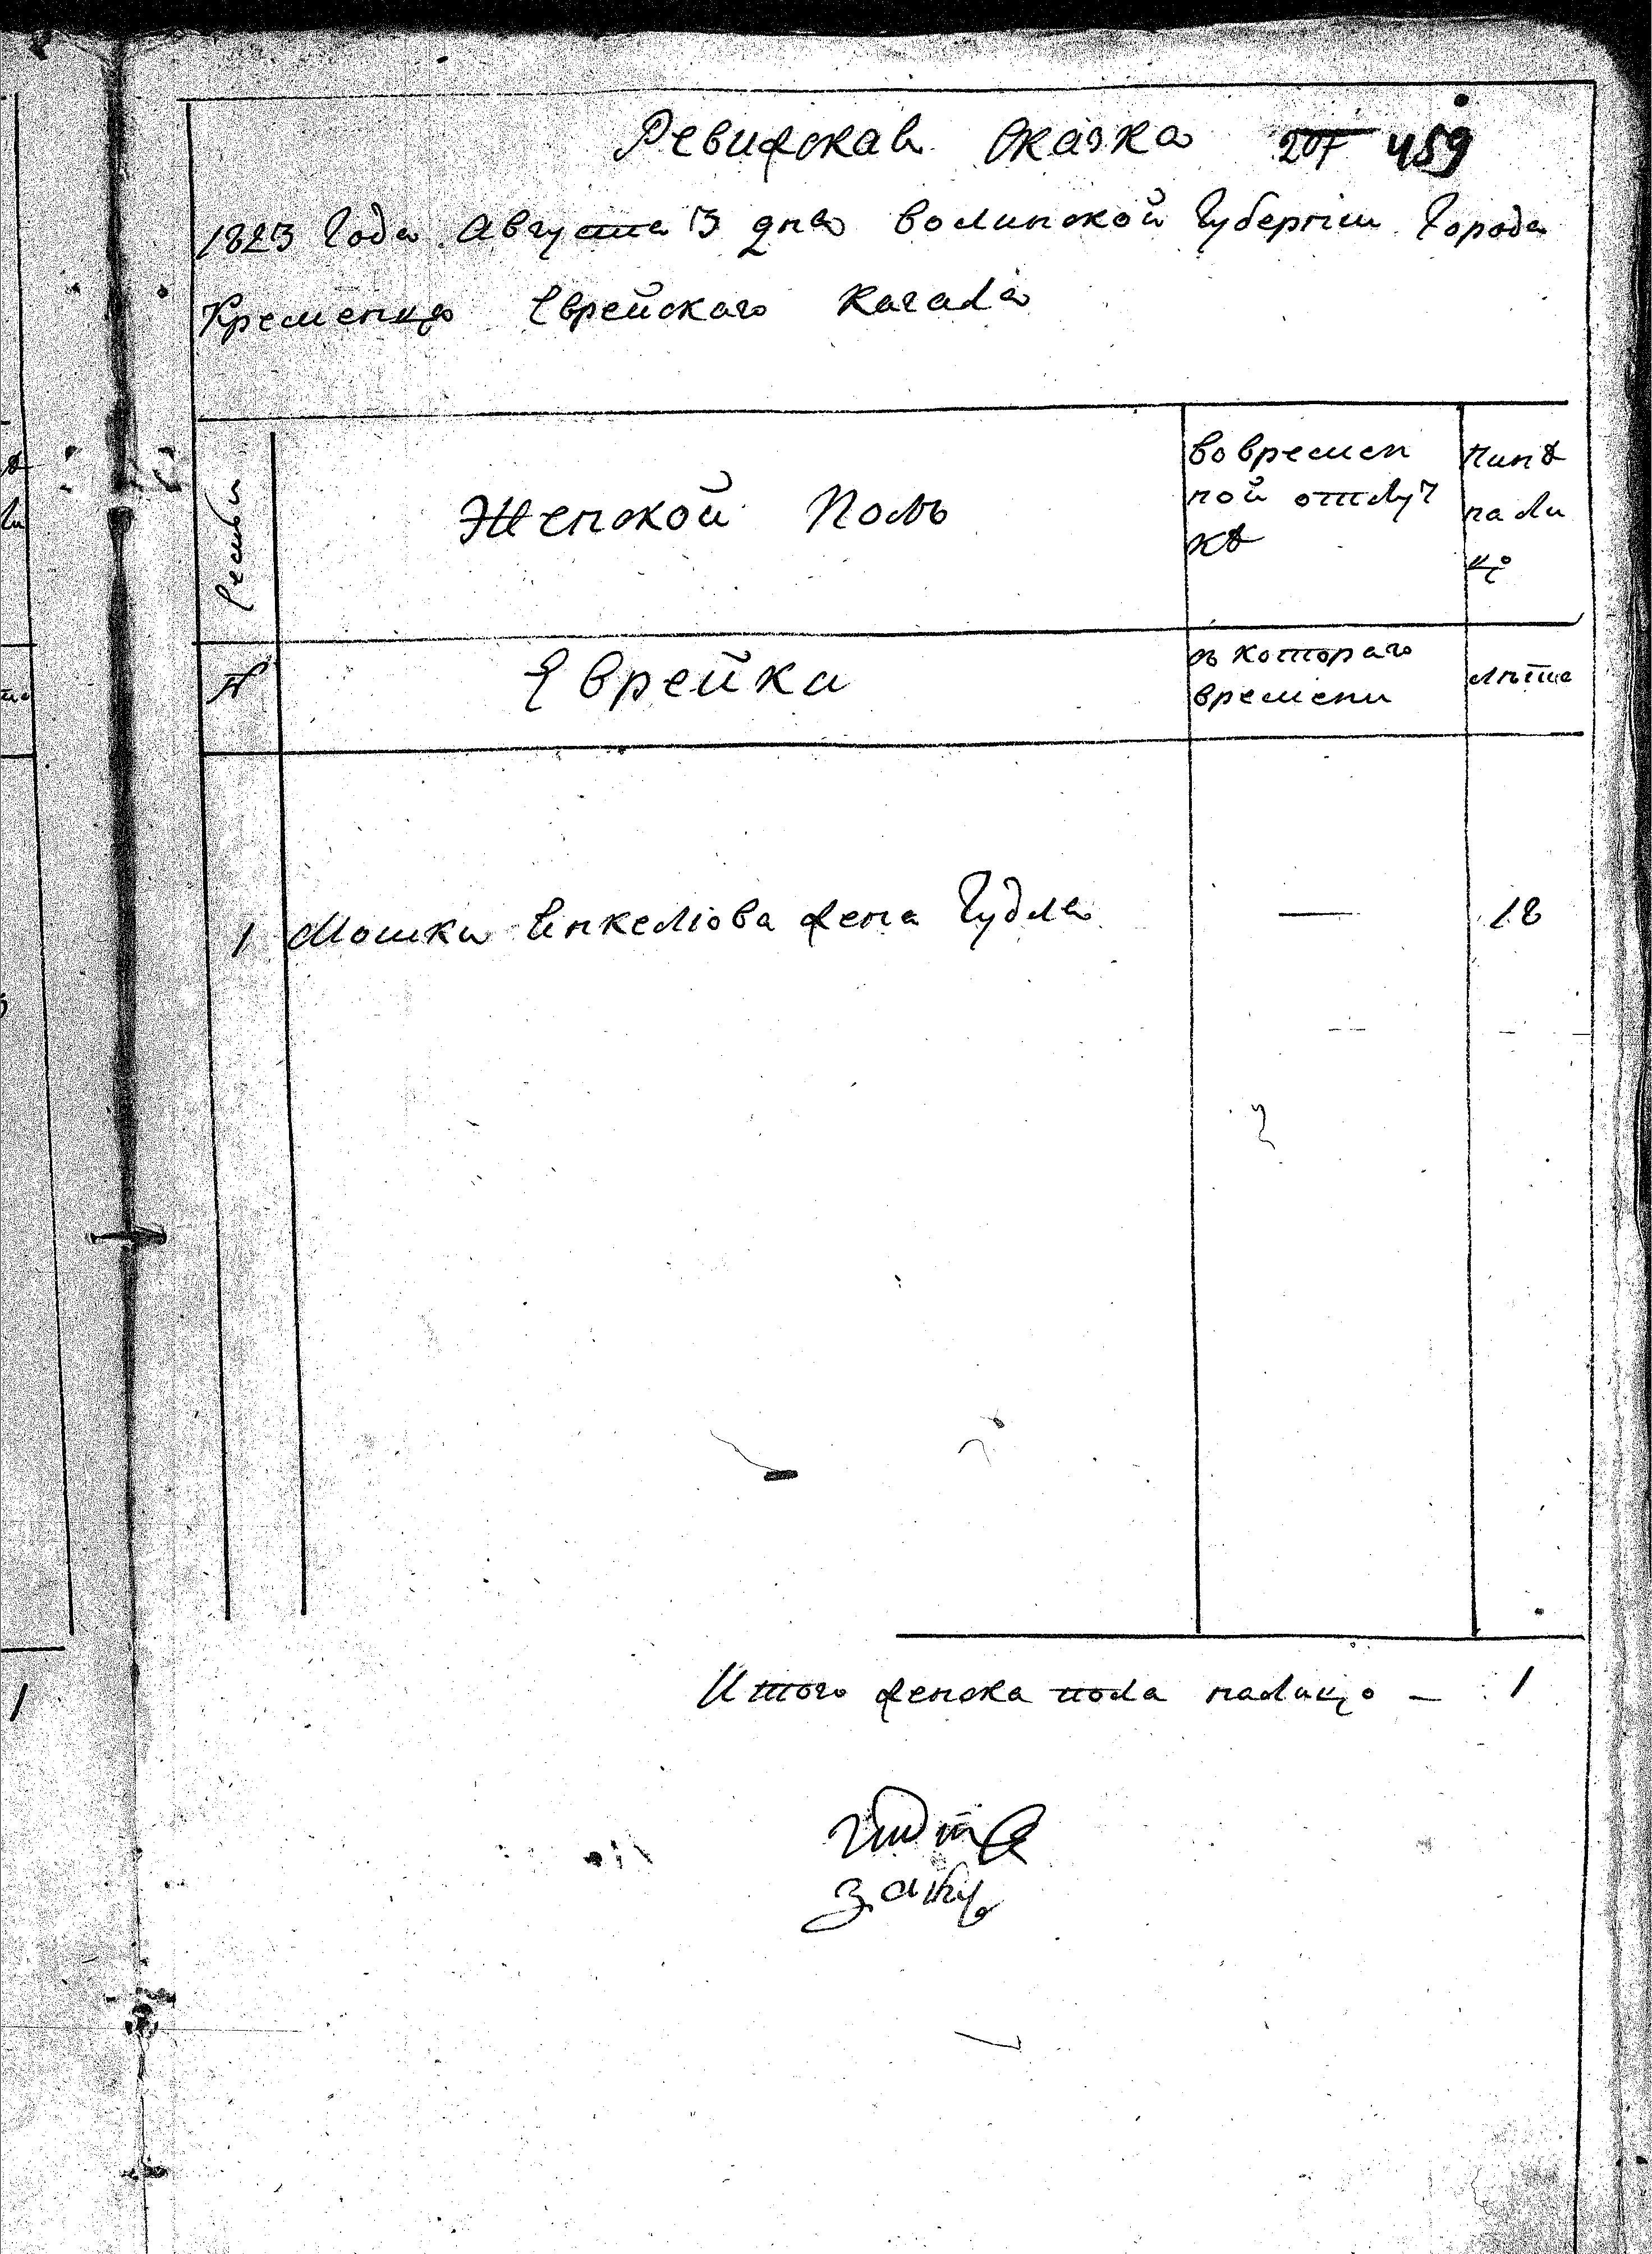 Ревижская Сказка 207 459
1823 Года Августа 3 дня волинской Губернии Города
Кременца Еврейскаго Кагала
Семьи
Женской Полъ
во времен
ной отлуч
кѣ
нинѣ
на ли
цо
№
Еврейки
съ котораго
времени
лѣта
1 Мошки Инкелюва жена Гудля — 18
Итого женска пола налицо — 1
1